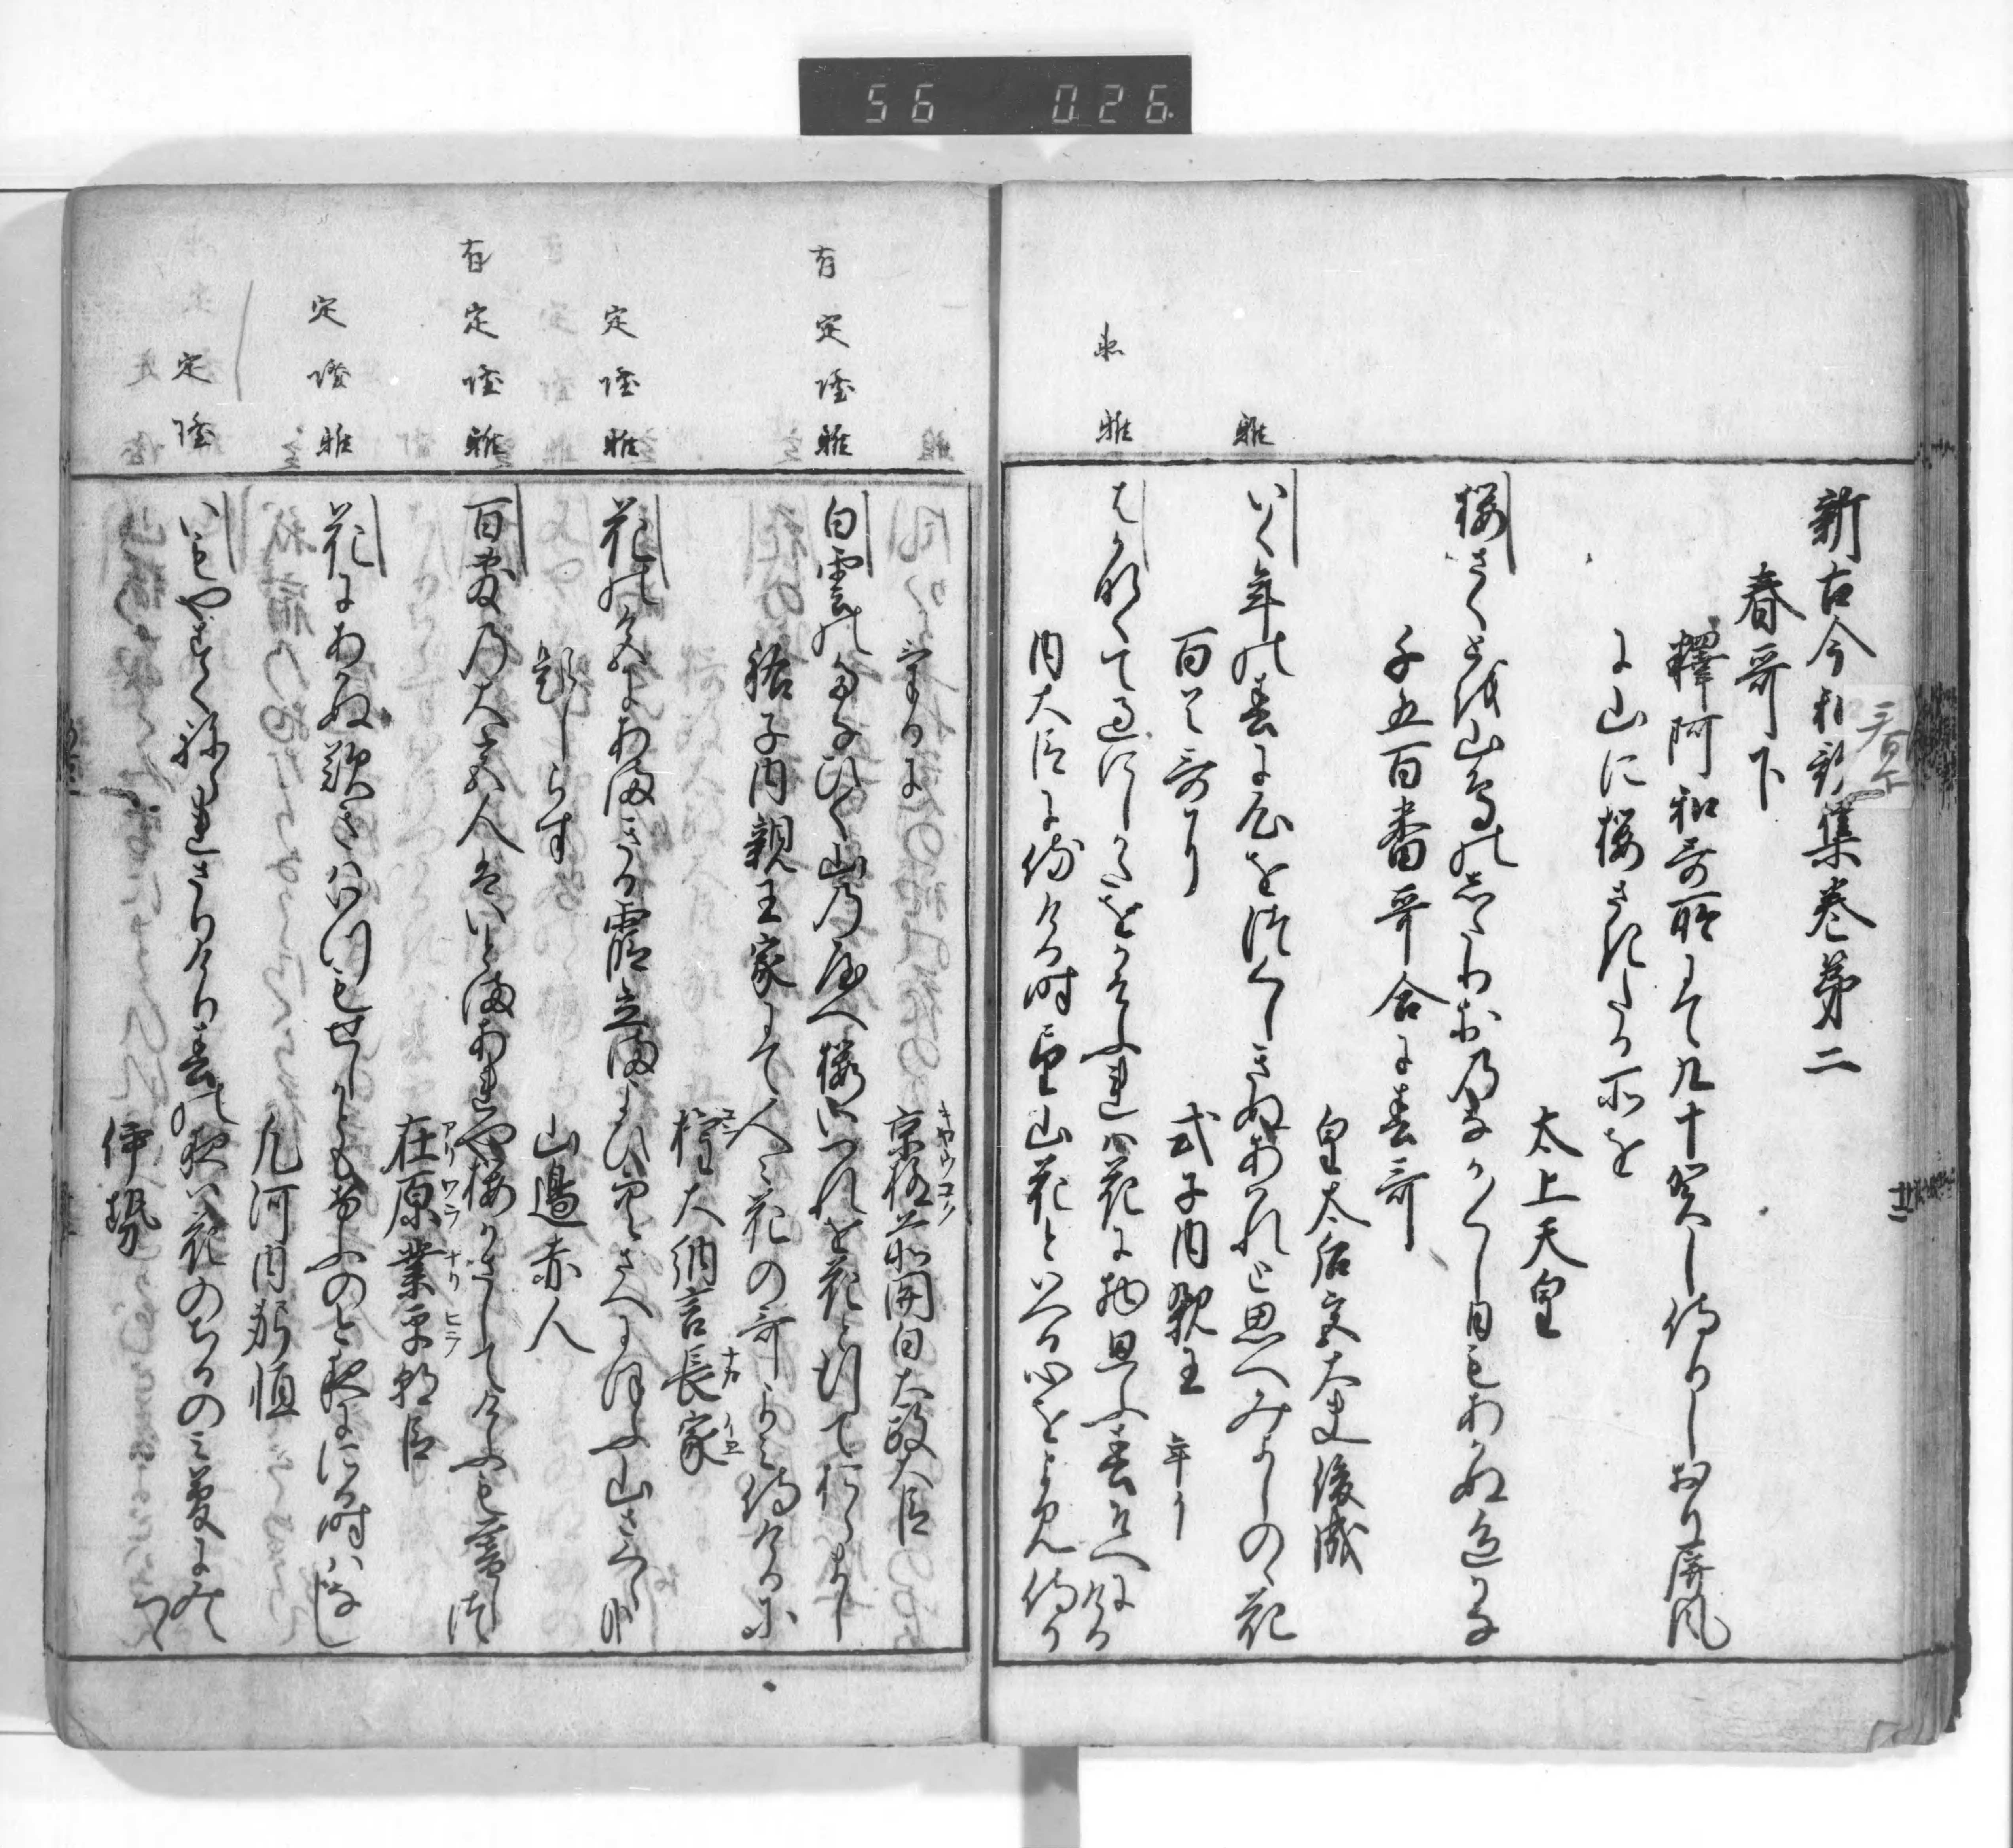 56 026
新古今和歌集巻第二
春哥下
釋阿和哥所にて九十賀し侍りしおり屏風
に山に桜さきたる所を
太上天皇
桜さくとを山鳥のしたりおのなか〳〵し日もあかぬ色かな
千五百番哥合に春哥
皇太后宮大夫俊成
雅
いく年の春に心をつくしきぬあはれと思へみよしのゝ花
百首哥に
式子内親王
雅
はかなくて過にしかたをかそふれは花に物思ふ春そへにける
内大臣に侍ける時望山花といへる心をよみ侍り
ける
京極前関白太政大臣
有定隆雅
白雲のたなひく山の八重桜いつれを花と行ておらまし
祐子内親王家にて人々花の哥よみ侍けるに
権大納言長家
定隆雅
花の色にあまきる霞立まよひ空さへにほふ山さくら哉
題しらす
山邊赤人
有定隆雅
百敷の大宮人はいとまあれや桜かさしてけふも暮しつ
在原業平朝臣
定隆雅
花にあかぬ歎きはいつもせしかともけふのこよひににる時はなし
凡河内躬恒
定隆
いもやすくねられさりけり春の夜は花のちるのみ夢にみえつゝ
伊勢